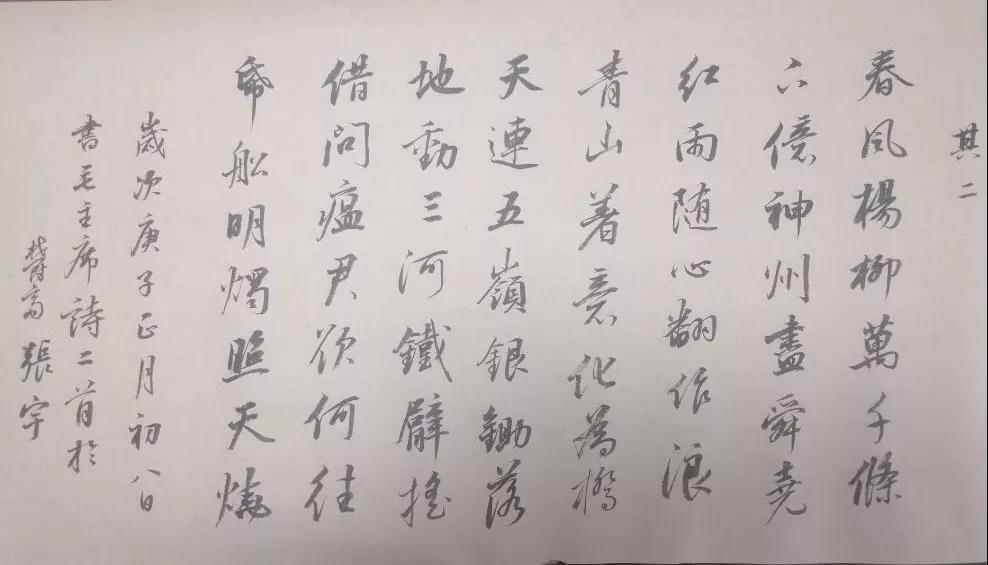 其二
春风楊柳萬千條
六億神州盡舜堯
红雨随心翻作浪
青山著意化為橋
天連五嶺銀鋤落
地動三河鐵臂摇
借問瘟君欲何往
帋船明燭照天燒
歲次庚子正月初八日
書毛主席詩二首於
張宇